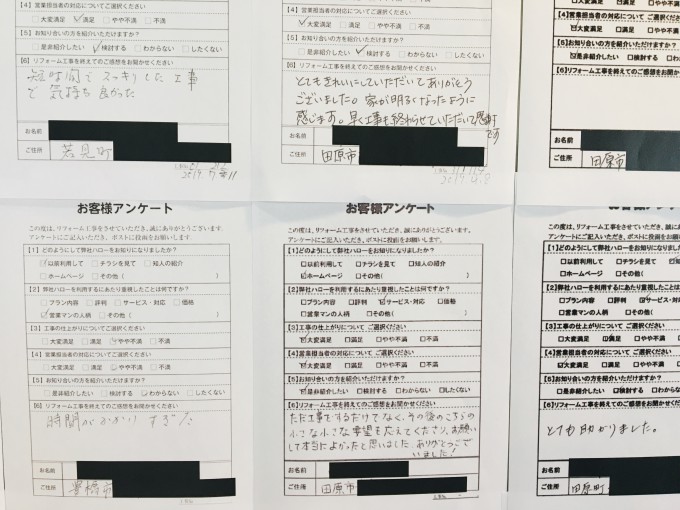 【4】営業担当者の対応についてご選択ください
□大変満足 ☑満足 □やや不満 □不満
【5】お知り合いの方を紹介いただけますか?
□是非紹介したい ☑検討する □わからない □したくない
【6】リフォーム工事を終えてのご感想をお聞かせください
短時間でスッキリした工事
で気持ち良かった
お名前
ご住所 若見町
【4】営業担当者の対応についてご選択ください
☑大変満足 □満足 □やや不満 □不満
【5】お知り合いの方を紹介いただけますか?
□是非紹介したい ☑検討する □わからない □したくない
【6】リフォーム工事を終えてのご感想をお聞かせください
とてもきれいにしていただいてありがとう
ございました。家が明るくなったように
感じます。早く工事も終わらせていただいて感謝
です
お名前
ご住所 田原市
【4】営業担当者の対応について ご選択くださ
☑大変満足 □満足 □やや不満
【5】お知り合いの方を紹介いただけますか?
☑是非紹介したい □検討する □わから
【6】リフォーム工事を終えてのご感想をお聞か
お名前
ご住所 田原市
お客様アンケート
この度は、リフォーム工事をさせていただき、誠にありがとうございます
アンケートにご記入いただき、ポストに投函をお願いします
【1】どのようにして弊社ハローをお知りになりましたか?
☑以前利用して □チラシを見て □知人の紹介
□ホームページ □その他( )
【2】弊社ハローを利用するにあたり重視したことは何ですか?
□プラン内容 □評判 □サービス・対応 □価格
☑営業マンの人柄 □その他( )
【3】工事の仕上がりについてご選択ください
□大変満足 □満足 ☑やや不満 □不満
【4】営業担当者の対応についてご選択ください
□大変満足 □満足 ☑やや不満 □不満
【5】お知り合いの方を紹介いただけますか?
□是非紹介したい □検討する ☑わからない □したくない
【6】リフォーム工事を終えてのご感想をお聞かせください
時間がかかりすぎた
お名前
ご住所 豊橋市
お客様アンケート
この度は、リフォーム工事をさせていただき、誠にありがとうございます。
アンケートにご記入いただき、ポストに投函をお願いします。
【1】どのようにして弊社ハローをお知りになりましたか?
□以前利用して □チラシを見て □知人の紹介
☑ホームページ □その他( )
【2】弊社ハローを利用するにあたり重視したことは何ですか?
□プラン内容 □評判 ☑サービス・対応 □価格
□営業マンの人柄 □その他( )
【3】工事の仕上がりについて ご選択ください
☑大変満足 □満足 □やや不満 □不満
【4】営業担当者の対応について ご選択ください
☑大変満足 □満足 □やや不満 □不満
【5】お知り合いの方を紹介いただけますか?
☑是非紹介したい □検討する □わからない □したくない
【6】リフォーム工事を終えてのご感想をお聞かせください
ただ工事をするだけでなく、その後のこちらの
小さな小さな要望も大えてくださり、お願い
して本当によかったと思いました。ありがとうござ
いました!
お名前
ご住所 田原市
お客様ア
この度は、リフォーム工事をさせていただき、誠に
アンケートにご記入いただき、ポストに投函をお願
【1】どのようにして弊社ハローをお知りになり
□以前利用して □チラシを見て
□ホームページ □その他(
【2】弊社ハローを利用するにあたり重視したことは
□プラン内容 □評判 ☑サービス
□営業マンの人柄 □その他(
【3】工事の仕上がりについて ご選択ください
□大変満足 ☑満足 □やや不満
【4】営業担当者の対応について ご選択くださ
☑大変満足 □満足 □やや不満
【5】お知り合いの方を紹介いただけますか?
□是非紹介したい ☑検討する □わから
【6】リフォーム工事を終えてのご感想をお聞か
とても助かりました。
お名前
ご住所 田原町